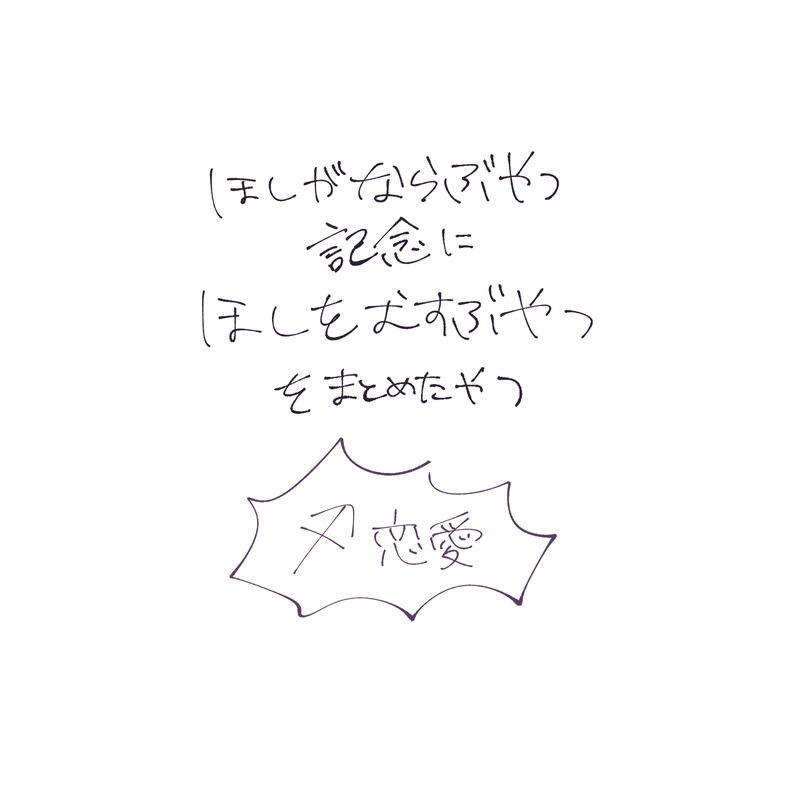 ほしがならぶやつ
記念に
ほしをむすぶやつ
をまとめたやつ
恋愛